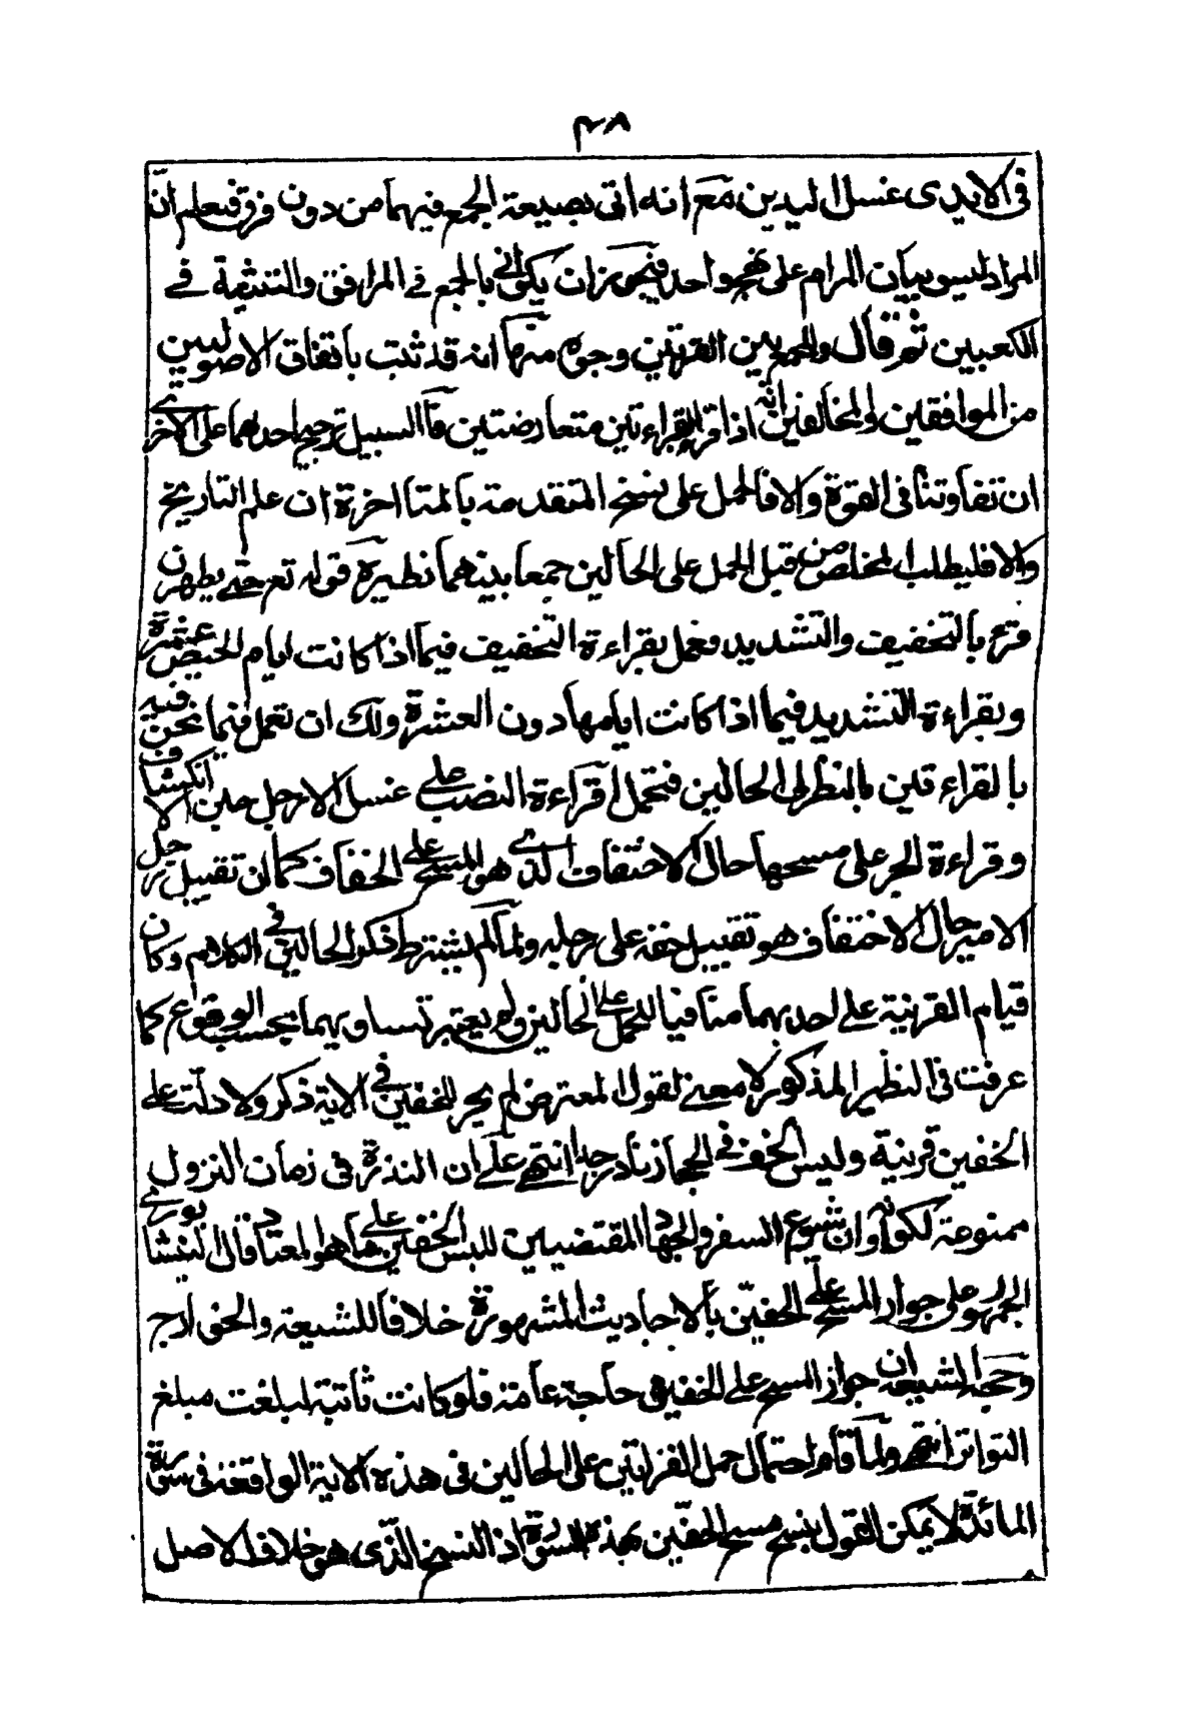 ٣٨
فى الايدى غسل اليدين مع انه اتى بصيغة الجمع فيهما من دون فرق فيعلم ان
المراد ليس بيان المرام على نهج واحد فيجوز ان يكون بالجمع فى المرافق والتثنية فے
الكعبين ثم قال والجمع بين القرائتين وجوه منها انه قد ثبت باتفاق الاصوليين
من الموافقين والمخالفين انه اذا قرء القراءتين متعارضتين فالسبيل ترجيح احدهما على الاخرى
ان تفاوتتا فى القوة والا فالحمل على نسخ المتقدمة بالمتاخرة ان علم التاريخ
والا فليطلب المخلص من قبل الحمل على الحالين جمعا بينهما نظيره قوله تع حتے يطهرن
قرء بالتخفيف والتشديد فعمل بقراءة التخفيف فيما اذا كانت ايام الحيض عشرة
وبقراءة التشديد فيما اذا كانت ايامها دون العشرة ولك ان تعمل فيما نحن فيه
بالقراءتين بالنظر الى الحالين فتحمل قراءة النصب على غسل الارجل حين الانكشاف
وقراءة الجر على مسحها حال الاختفاف الذى هو المسح على الخفاف كما ان تقبيل رجل
الامير حال الاختفاف هو تقبيل خفه على رجله ولما لم يشترط ذكر الحالين فى الكلام وكان
قيام القرينة على احدهما منافيا للحمل على الحالين ولم يعتبر تساويهما بحسب الوقوع كما
عرفت فى النظير المذكور لا معنے لقول المعترض لم يجر للخفين فى الاية ذكر ولا دلت على
الخفين قرينة وليس الخف فى الحجاز بنادر جدا انتهے علے ان الندرة فى زمان النزول
ممنوعة لكون اوان شيوع السفر والجهاد المقتضيين للبس الخفين على ما هو المعتاد قال النيشابورى
الجمهور على جواز المسح علے الخفين بالاحاديث المشهورة خلافا للشيعة والخوارج
وحجة الشيعة ان جواز المسح على الخفين حاجة عامة فلو كانت ثابتة لبلغت مبلغ
التواتر انتهے ولما قام احتمال حمل القرائتين على الحالين فى هذه الاية الواقعة فى سورة
المائدة لا يمكن القول بنسخ مسح الخفين بهذه السورة اذ النسخ الذى هو خلاف الاصل